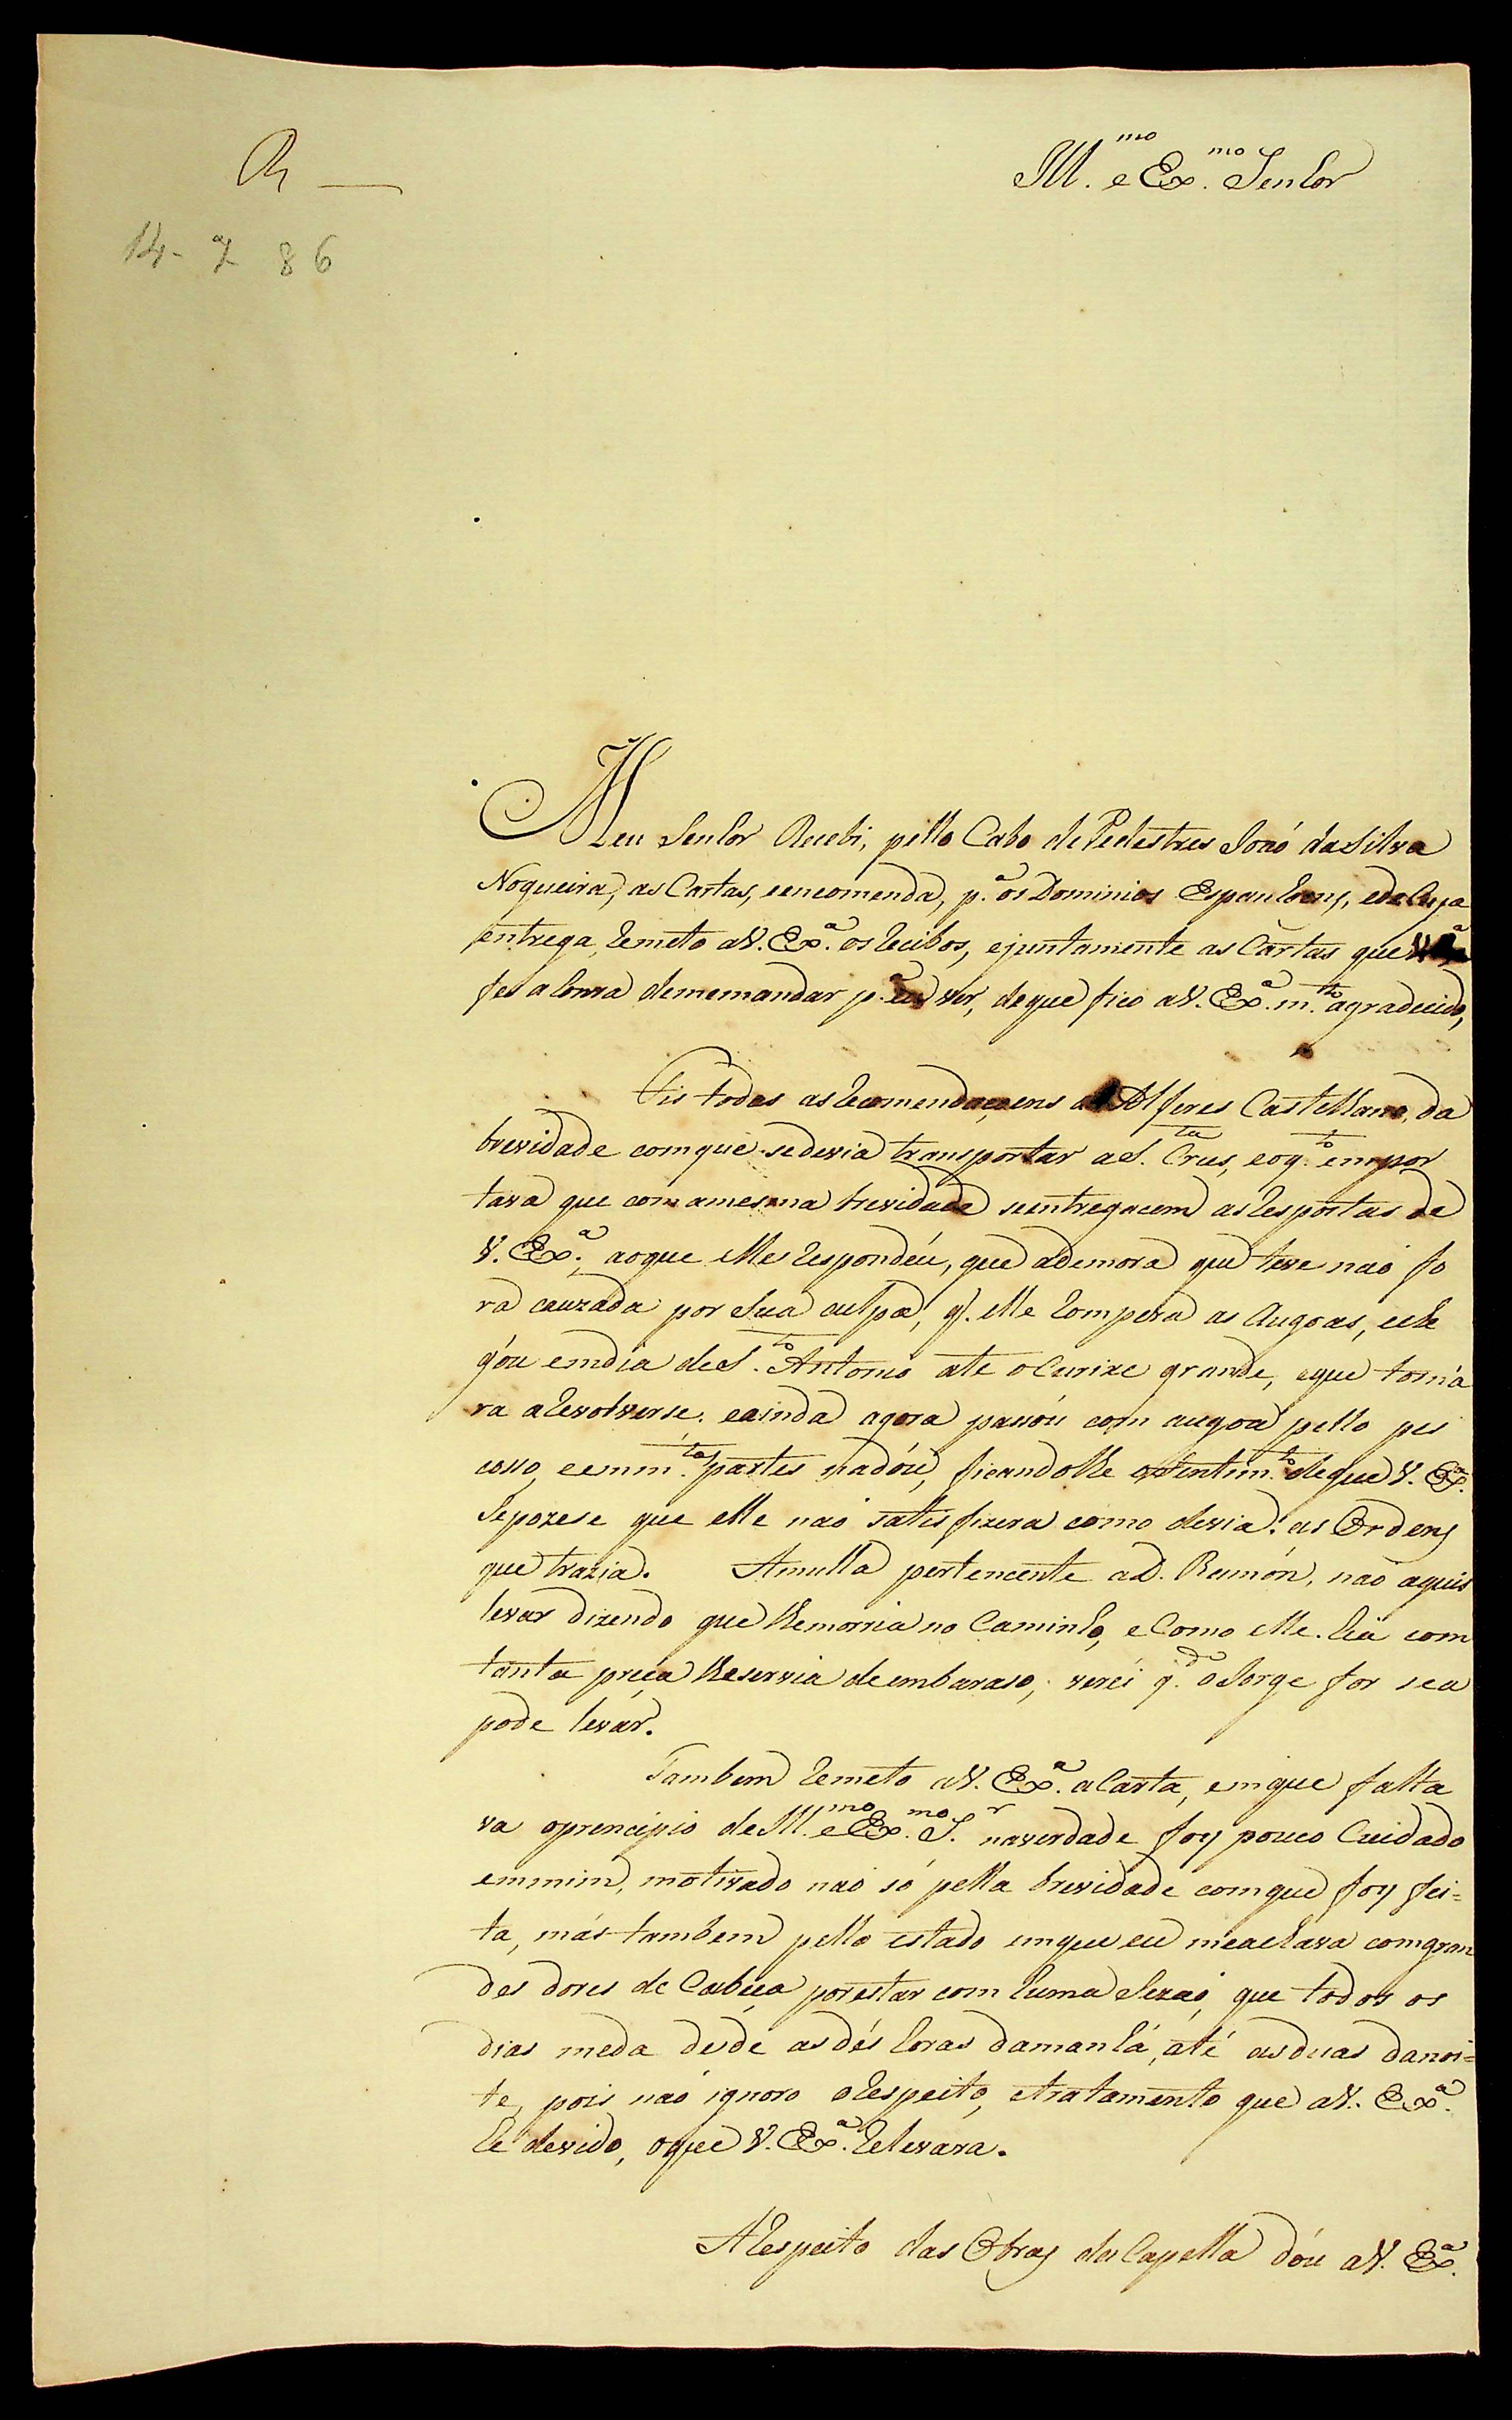 R —
Ill.mo e Ex.mo Senhor
14 - 7 86
Meu Senhor Recebi, pello Cabo de Pedestres Joaó da Silva
Nogueira, as Cartas, eencomenda, p.a os Dominios Espanhoens, ede Cuja
entrega, Remeto aV. Ex.a os Recibos, ejuntamente as Cartas que V.
fes a honra dememandar p.a eu ver, deque fico aV. Ex.a m.to agradecido,
Fis todas as Recomendaçoens ao Alferes Castelhano, da
brevidade comque sedevia transportar aS.ta Crus, eoq.to empor
tava que com amesma brevidade seentregacem as Respostas de
V. Ex.a, aoque elle Respondéu, que ademora que teve naó fo
ra cauzada por Sua culpa, q. elle Rompera as Augoas, eche
góu emdia deS.to Antonio ate o Curixe grande, eque torná
ra aRevolverse, eainda agora passóu com augoa pello pes
cosso, eemm.tas partes nadóu, ficandolhe oSentim.to deque V. Ex.a
Sepozese que elle naó satisfizera como devia as Ordens
que trazia. Amulla pertencente aD. Ramón, naó aquis
levar dizendo que lhemorria no Caminho, e Como elle hia com
tanta preça lheservia deembaraso, veréi q.do oJorge for sea
pode levár.
Tambem Remeto aV. Ex.a aCarta, emque falta
va oprencipio de Ill.mo e Ex.mo S.r naverdade foy pouco Cuidado
emmim, motivado naó só pella brevidade comque foy fei=
ta, más tambem pello estado emque eu meachava comgran
des dores de Cabeça porestar com huma Sezaó, que todos os
dias meda desde as dés horas damanhá, até asduas danoi=
te, pois naó ignoro oRespeito, etratamento que aV. Ex.a
he devido, oque V. Ex.a Relevara.
ARespeito das Obras da Capella dóu aV. Ex.a